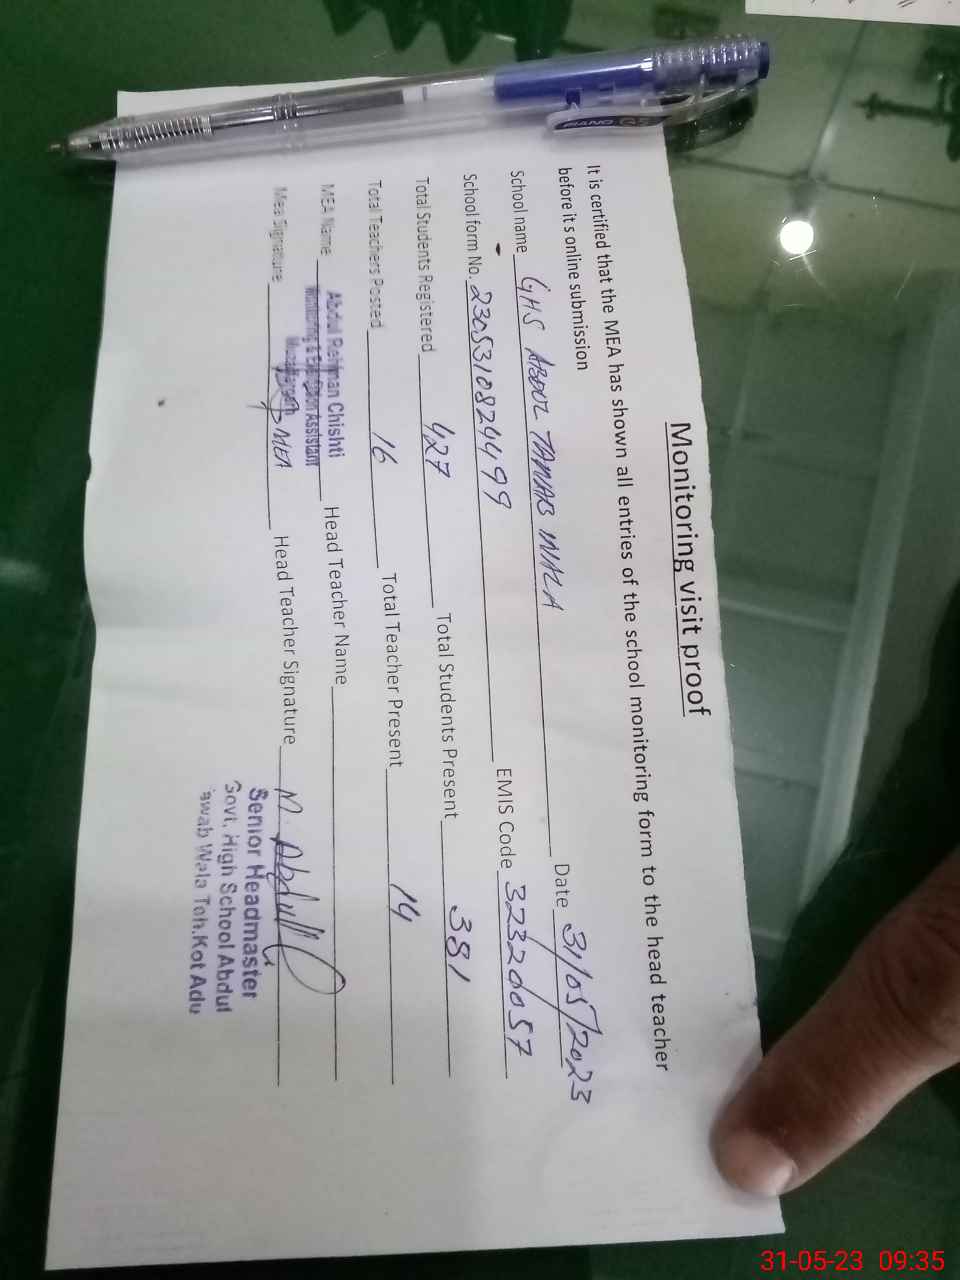 Monitoring visit proof
It is certified that the MEA has shown all entries of the school monitoring form to the head teacher
before it s online submission
School name GHS ABDUL WALA Date 31/05/2023
School form No. 2305310824499 EMIS Code 32320057
Total Students Registered 427 Total Students Present 381
Total Teachers Posted 16 Total Teacher Present 14
MEA Name Abdul Rehman Chishti Head Teacher Name
Monitoring & Evaluation Assistant
Muzaffargarh
Mea Signature MEA Head Teacher Signature M. Abdull
Senior Headmaster
Govt. High School Abdul
Wala Teh. Kot Adu
PIANO
31-05-23 09:35